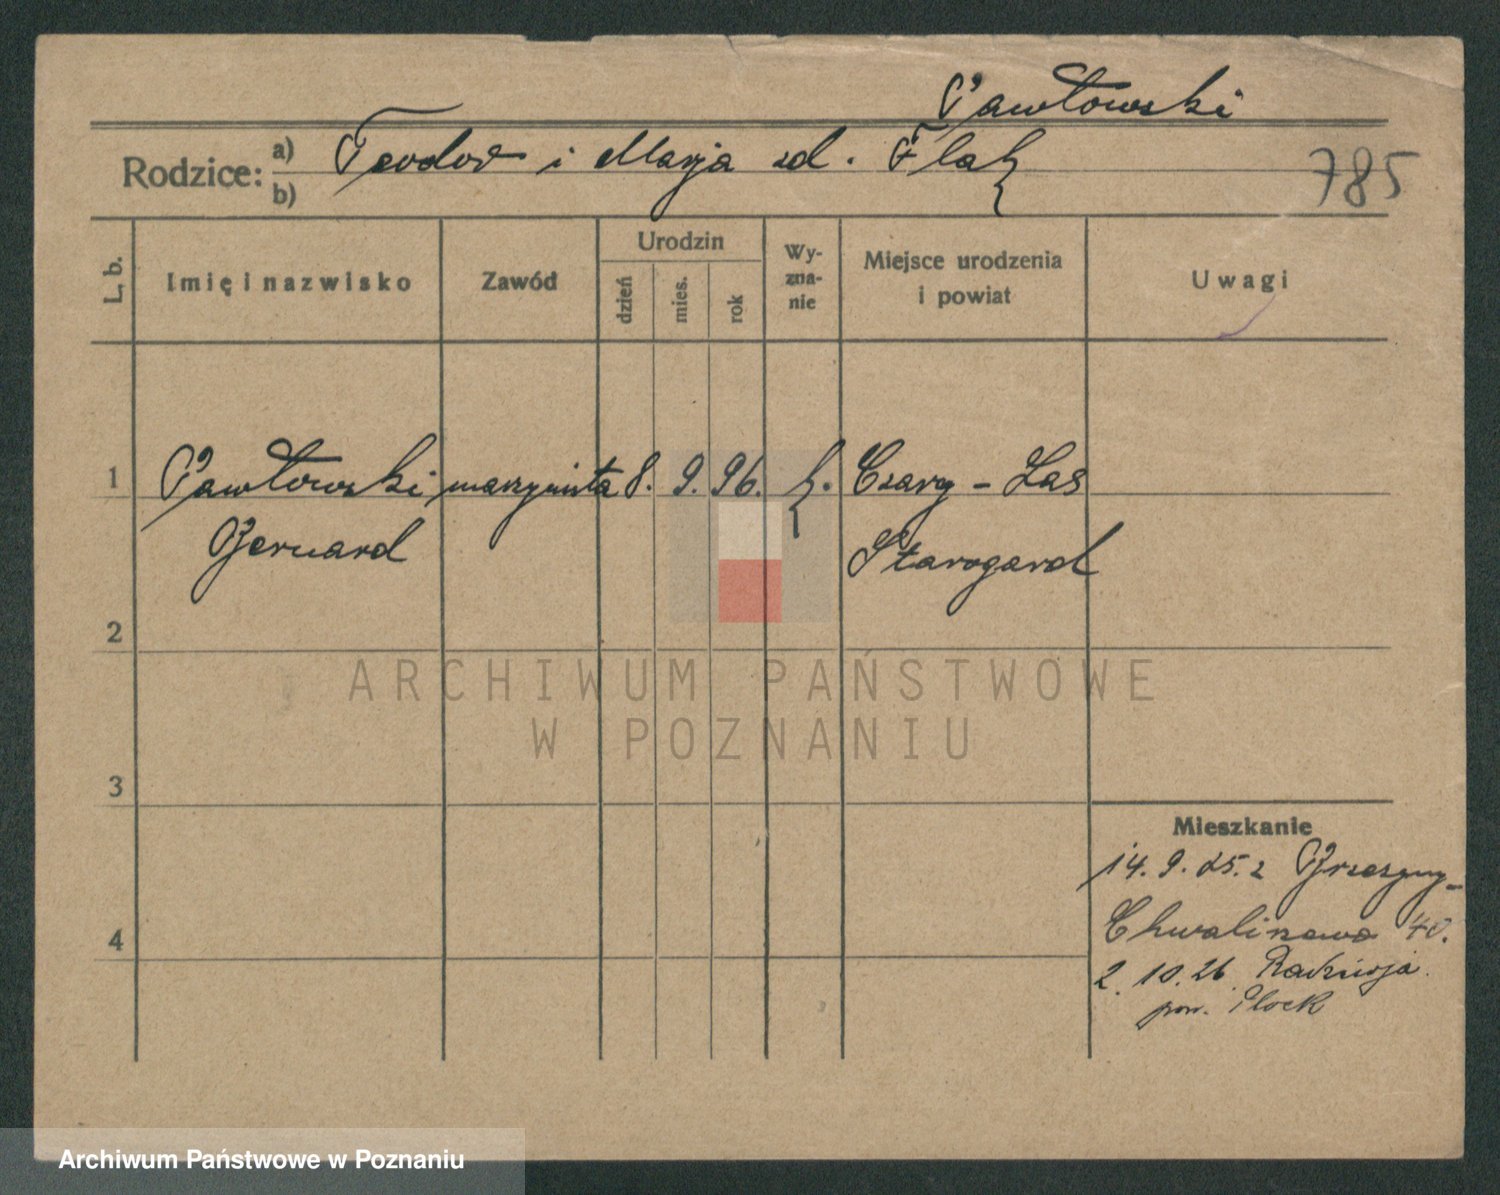 Pawłowski
Rodzice: a) Teodor i Marja zd. Flak
b)
785
L. b.
Imię i nazwisko
Zawód
Urodzin
dzień
mies.
rok
Wy-
zna-
nie
Miejsce urodzenia
i powiat
Uwagi
1 Pawłowski maszynista 8. 9. 96. k. Czarny-Las
Bernard Starogard
2
3
4
Mieszkanie
14. 9. 25. z
Chwaliszewo 40.
2. 10. 26. Radziwja
pow. Płock
ARCHIWUM PAŃSTWOWE
W POZNANIU
Archiwum Państwowe w Poznaniu